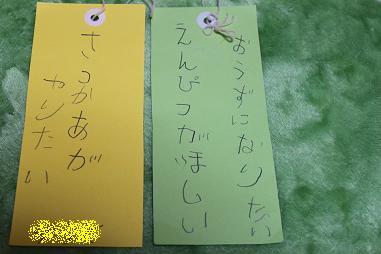 おうずになりたい
えんぴつがほしい
さっかあが
やりたい